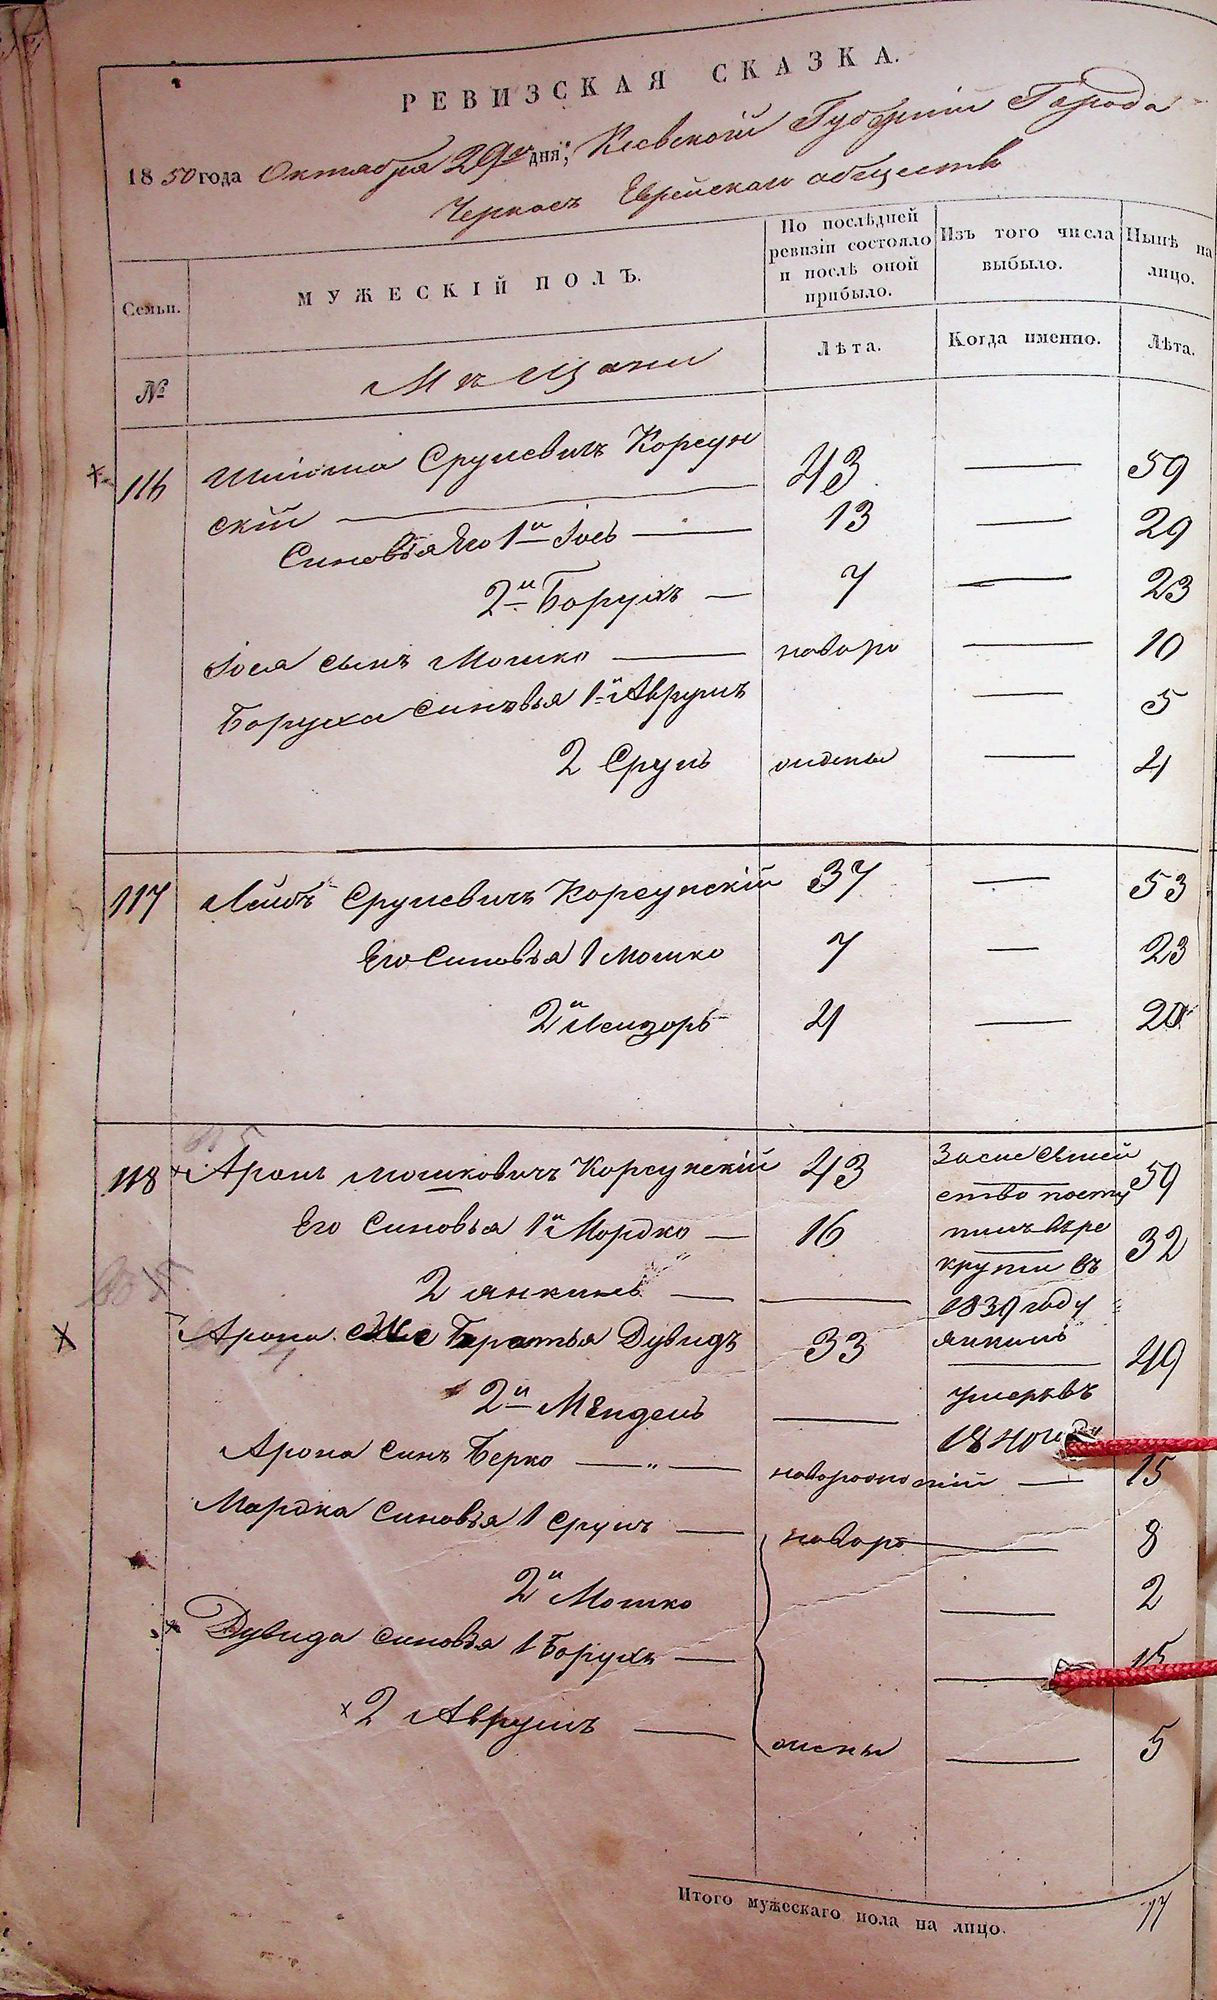 РЕВИЗСКАЯ СКАЗКА.
1850 года Октября 29го дня, Киевской Губернии Города
Черкасъ Еврейскаго общества
Семьи.
МУЖЕСКІЙ ПОЛЪ.
По послѣдней ревизіи состояло и послѣ оной прибыло.
Изъ того числа выбыло.
Нынѣ на лицо.
№
Мѣщани
Лѣта.
Когда именно.
Лѣта.
116 Шліома Срулевичъ Корсун
скій — 43 — 59
Синовья Его 1й Іось — 13 — 29
2й Борухъ — 7 — 23
Іося сынъ Мошко — новоро — 10
Боруха синовья 1й Аврумъ — 5
2 Сруль жденые — 4
117 Лейбъ Срулевичъ Корсунскій 37 — 53
Его Синовья 1 Мошко 7 — 23
2й Лейзоръ 4 — 20
118 Аронъ Мошковичъ Корсунскій 43 59
Его Синовья 1й Мордко — 16 32
2 Янкиль — —
Арона же Братья Дувидъ 33 49
2й Мендель —
За семейство поступилъ в рекруты въ
1839 году
Янкиль
умеръ въ
1840 году
Арона синъ Берко — „ — новорожденій — 15
Мордка Синовья 1 Сруль — новоро — 8
2й Мошко — 2
Дувида синовья 1 Борухъ — — 15
2 Аврумъ — жены — 5
Итого мужескаго пола на лицо. 17